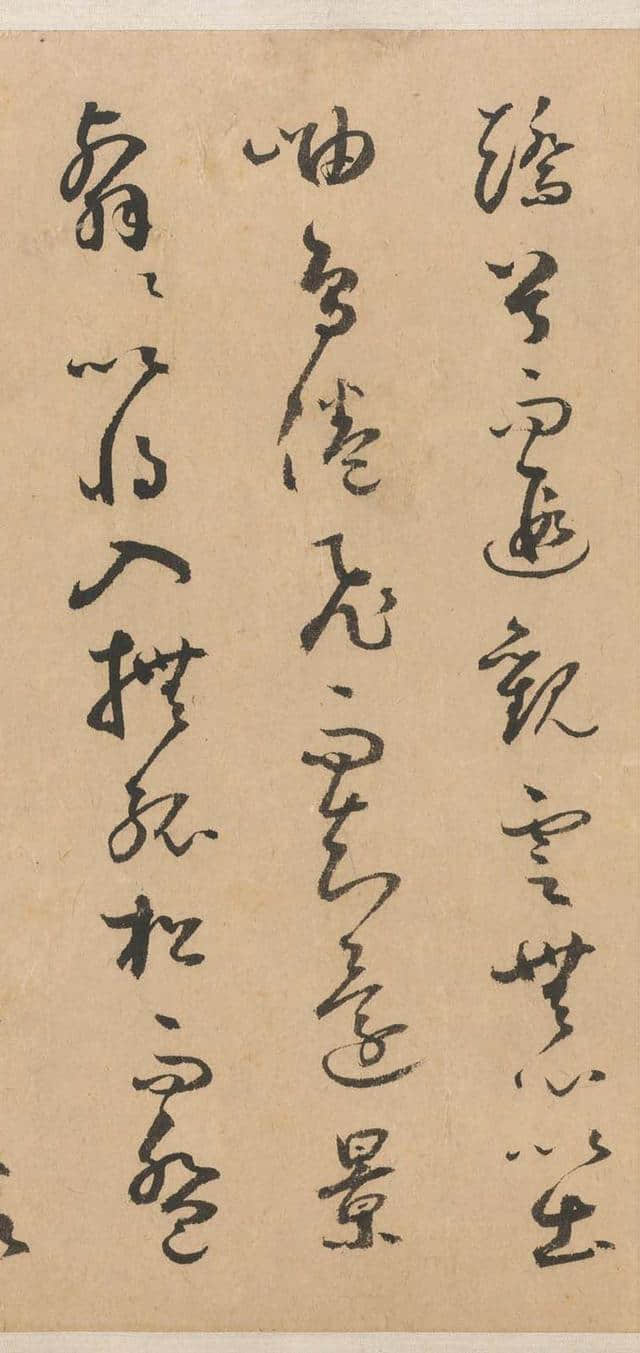 矯首而遐觀雲無心以出
岫鳥倦飛而知還景
翳〻以將入撫孤松而盤